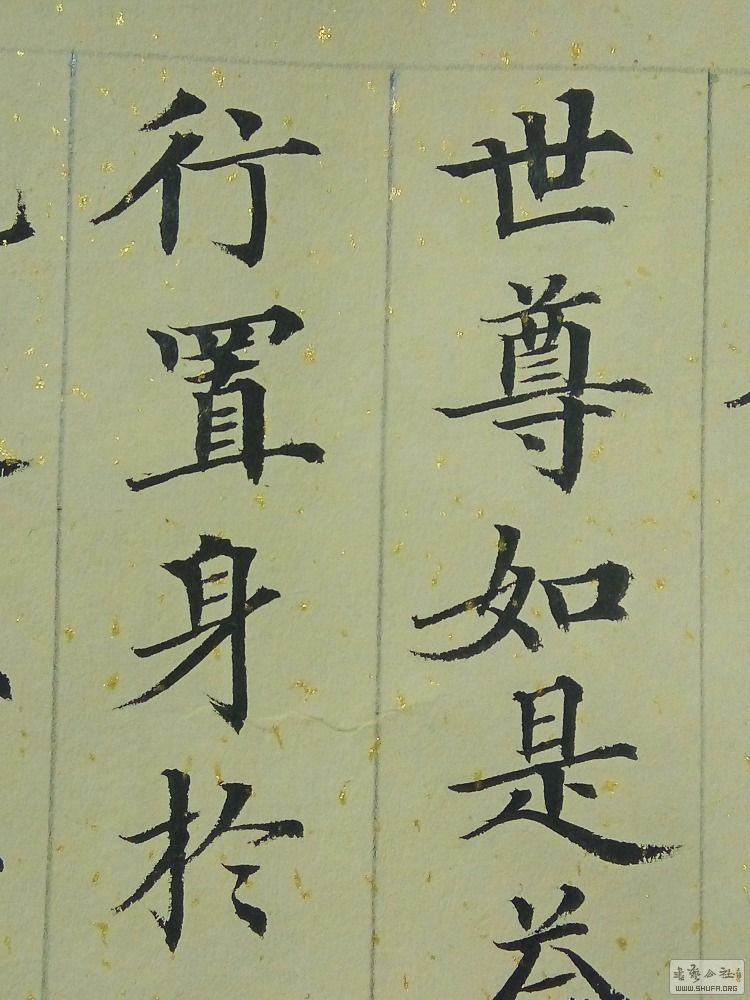 世尊如是
行置身於
书艺公社
WWW.SHUFA.ORG